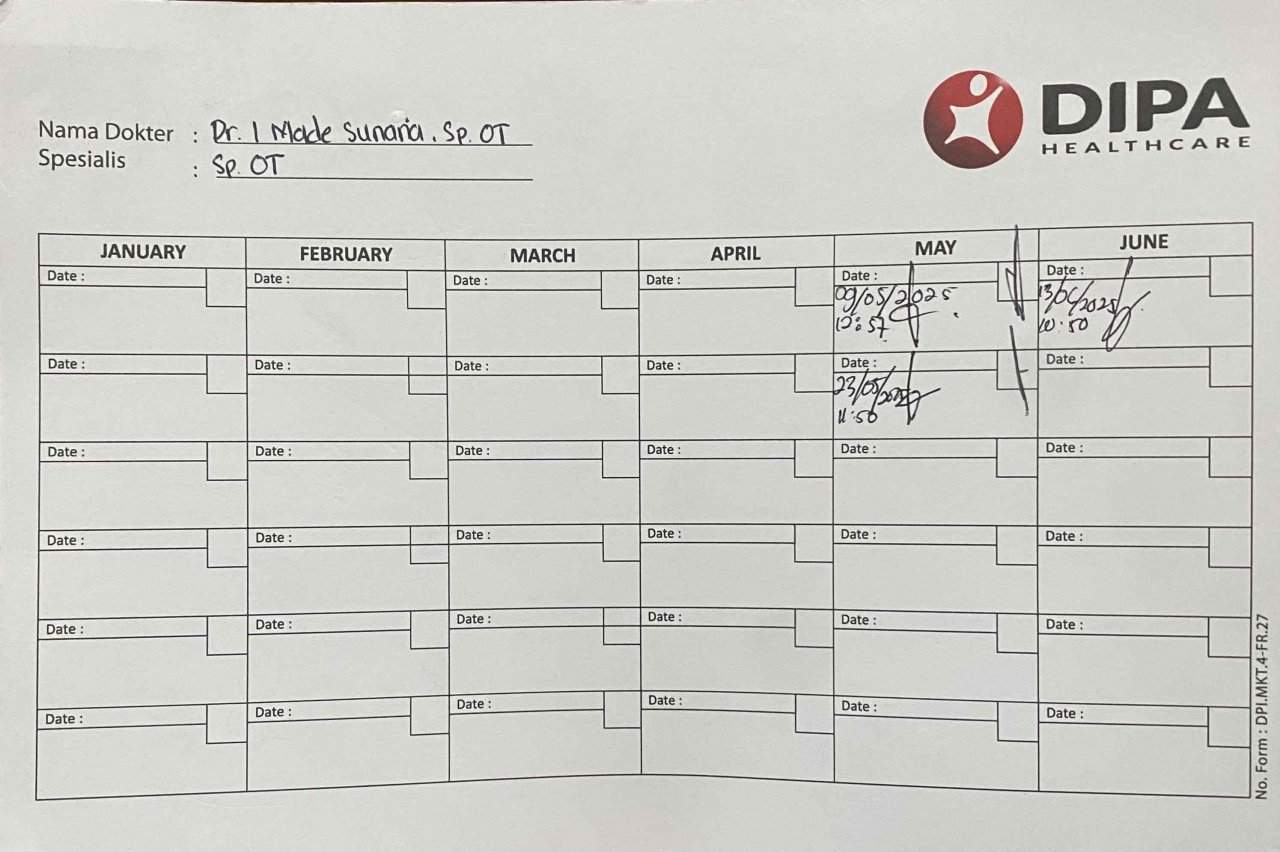 DIPA
HEALTHCARE
Nama Dokter : Dr. I Made Sunaria. Sp. OT
Spesialis : Sp. OT
JANUARY FEBRUARY MARCH APRIL MAY JUNE
Date : Date : Date : Date : Date : Date :
09/05/2025 13/06/2025
12:57 10:50
Date : Date : Date : Date : Date : Date :
23/05/2025
11:50
Date : Date : Date : Date : Date : Date :
Date : Date : Date : Date : Date : Date :
Date : Date : Date : Date : Date : Date :
Date : Date : Date : Date : Date : Date :
No. Form : DPI.MKT.4-FR.27